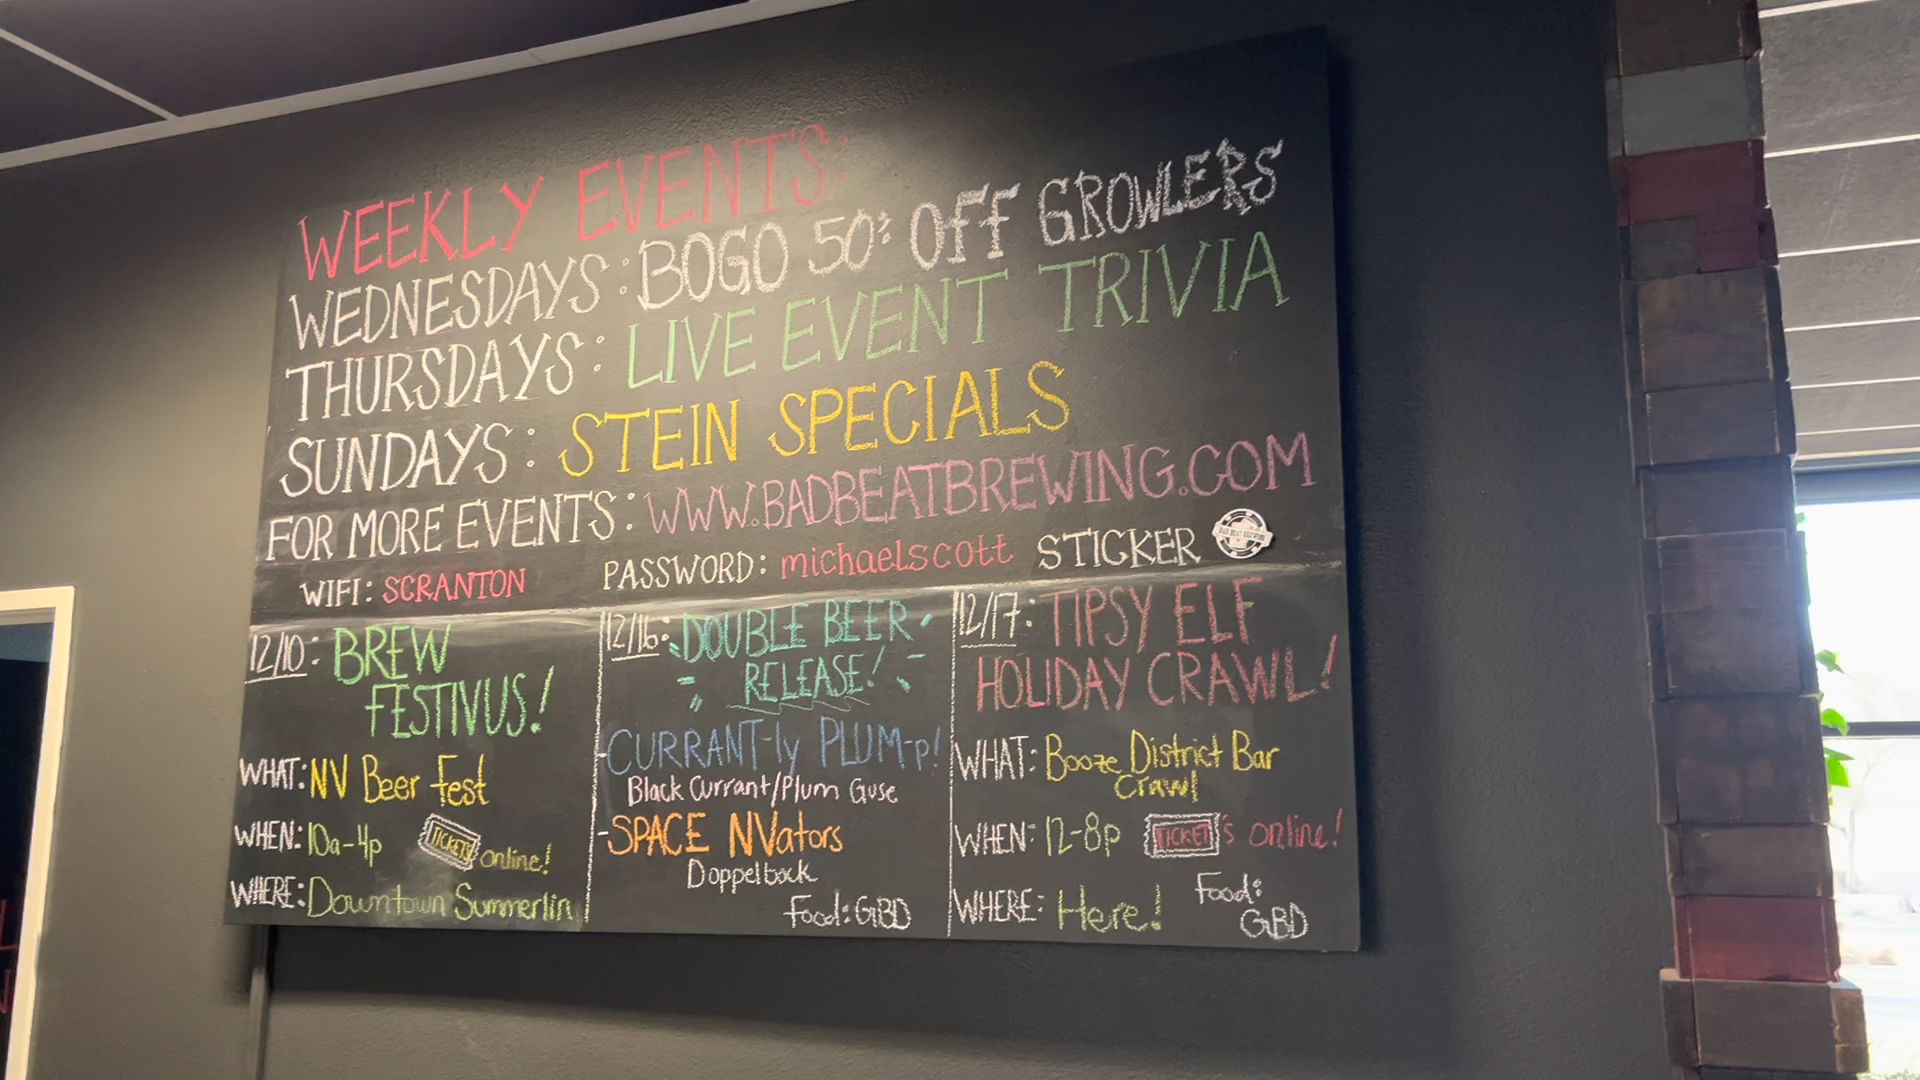 WEEKLY EVENTS:
WEDNESDAYS: BOGO 50% OFF GROWLERS
THURSDAYS: LIVE EVENT TRIVIA
SUNDAYS: STEIN SPECIALS
FOR MORE EVENTS: WWW.BADBEATBREWING.COM
WIFI: SCRANTON PASSWORD: michaelscott STICKER BAD BEAT BREWING
12/10: BREW
FESTIVUS!
WHAT: NV Beer Fest
WHEN: 10a-4p TICKETS online!
WHERE: Downtown Summerlin
12/16: DOUBLE BEER
RELEASE!
-CURRANT-ly PLUM-p!
Black Currant/Plum Guse
-SPACE NVators
Doppelbock
Food: GBD
12/17: TIPSY ELF
HOLIDAY CRAWL!
WHAT: Booze District Bar
Crawl
WHEN: 12-8p TICKET's online!
WHERE: Here! Food:
GBD